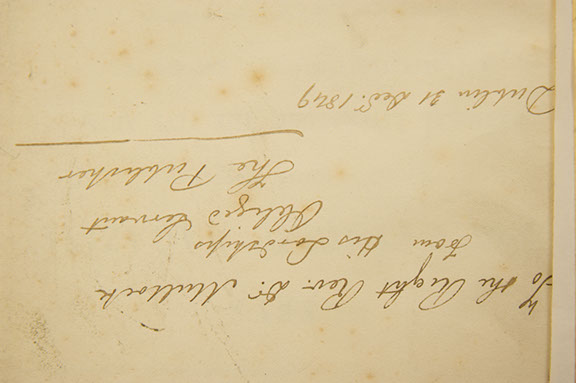 To the Right Rev. Dr. Mullock
from His Lordships
Obliged Servant
The Publisher
Dublin 31 Decr. 1849